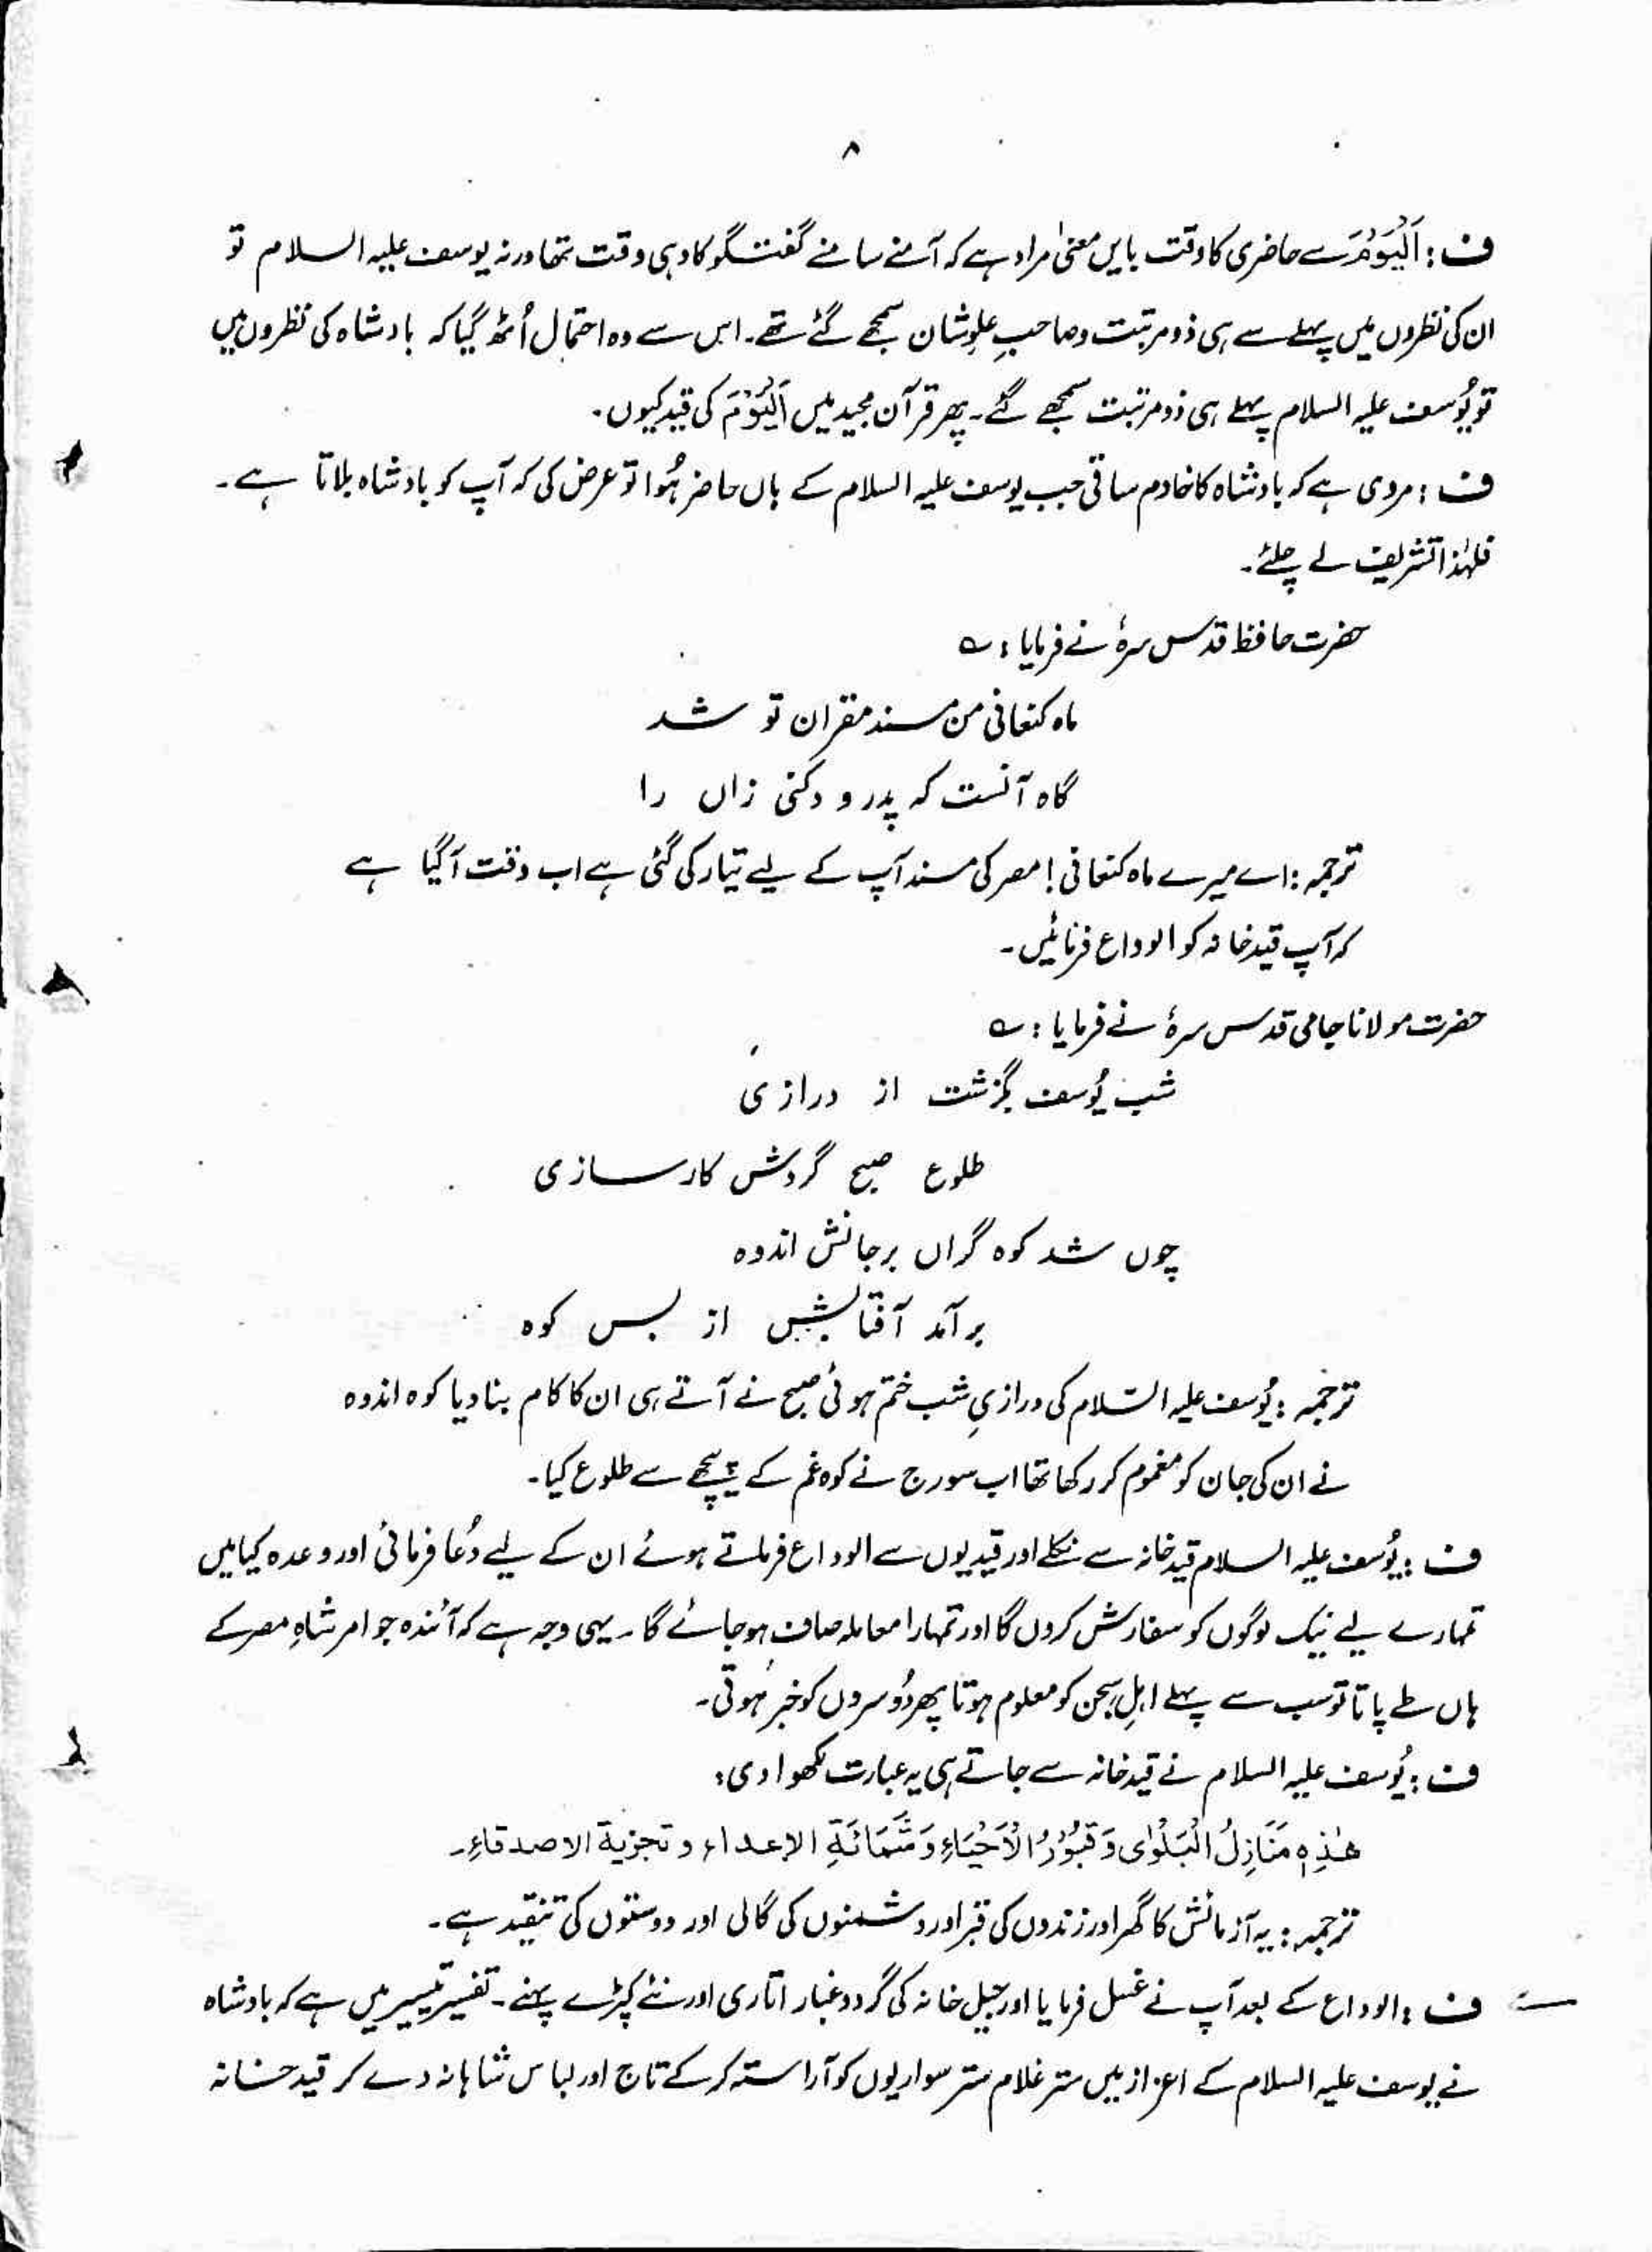 ۸
ف : اَلْیَوْمَ سے حاضری کا وقت بایں معنیٰ مراد ہے کہ آمنے سامنے گفتگو کا وہی وقت تھا ورنہ یوسف علیہ السلام تو
ان کی نظروں میں پہلے سے ہی ذو مرتبت وصاحبِ علوِشان سمجھے گئے تھے۔ اس سے وہ احتمال اُٹھ گیا کہ بادشاہ کی نظروں میں
تو یُوسف علیہ السلام پہلے ہی ذو مرتبت سمجھے گئے۔ پھر قرآن مجید میں اَلْیَوْمَ کی قید کیوں۔
ف : مروی ہے کہ بادشاہ کا خادم ساقی جب یوسف علیہ السلام کے ہاں حاضر ہُوا تو عرض کی کہ آپ کو بادشاہ بلاتا ہے۔
فلہٰذا تشریف لے چلئے۔
حضرت حافظ قدس سرہٗ نے فرمایا : ؎
ماہ کنعانی من مسند مقران تو شد
گاہ آنست کہ پدر و دکنی زاں را
ترجمہ : اے میرے ماہ کنعانی ! مصر کی مسند آپ کے لیے تیار کی گئی ہے اب وقت آگیا ہے
کہ آپ قید خانہ کو الوداع فرمائیں۔
حضرت مولانا جامی قدس سرہٗ نے فرمایا : ؎
شب یُوسف بگزشت از درازی
طلوع صبح گردش کارسازی
چوں شد کوہ گراں برجانش اندوہ
برآمد آفتابش از پس کوہ
ترجمہ : یُوسف علیہ السّلام کی درازیِ شب ختم ہوئی صبح نے آتے ہی ان کا کام بنادیا کوہ اندوہ
نے ان کی جان کو مغموم کر رکھا تھا اب سورج نے کوہ غم کے پیچھے سے طلوع کیا۔
ف : یُوسف علیہ السلام قید خانہ سے نکلے اور قیدیوں سے الوداع فرماتے ہوئے ان کے لیے دُعا فرمائی اور وعدہ کیا میں
تمہارے لیے نیک لوگوں کو سفارش کروں گا اور تمہارا معاملہ صاف ہوجائے گا۔ یہی وجہ ہے کہ آئندہ جو امر شاہِ مصر کے
ہاں طے پاتا تو سب سے پہلے اہلِ سجن کو معلوم ہوتا پھر دُوسروں کو خبر ہُوتی۔
ف : یُوسف علیہ السلام نے قید خانہ سے جاتے ہی یہ عبارت لکھوا دی :
ھٰذِہٖ مَنَازِلُ الْبَلْوٰی وَ قُبُوْرُ الْاَحْیَاءِ وَ شَمَاتَۃِ الاعداء و تجزیۃ الاصدقاءِ۔
ترجمہ : یہ آزمائش کا گھر اور زندوں کی قبر اور دشمنوں کی گالی اور دوستوں کی تنقید ہے۔
ف : الوداع کے بعد آپ نے غسل فرمایا اور جیل خانہ کی گرد و غبار اتاری اور نئے کپڑے پہنے۔ تفسیر تیسیر میں ہے کہ بادشاہ
نے یوسف علیہ السلام کے اعزاز میں ستر غلام ستر سواریوں کو آراستہ کر کے تاج اور لباس شاہانہ دے کر قید خانہ